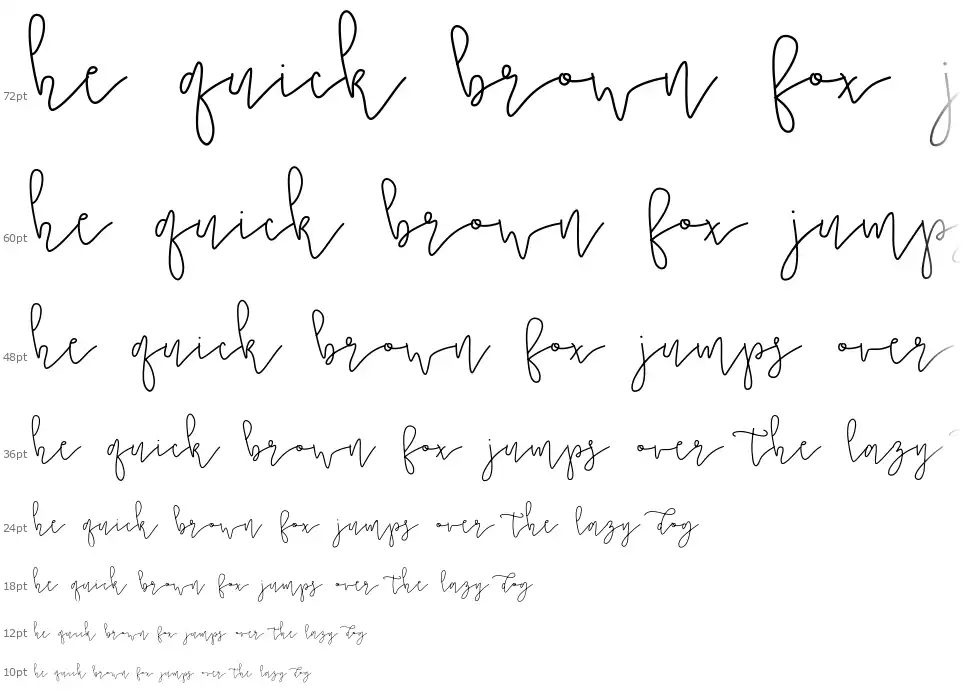 72pt he quick brown fox j
60pt he quick brown fox jump
48pt he quick brown fox jumps over
36pt he quick brown fox jumps over the lazy
24pt he quick brown fox jumps over the lazy dog
18pt he quick brown fox jumps over the lazy dog
12pt he quick brown fox jumps over the lazy dog
10pt he quick brown fox jumps over the lazy dog